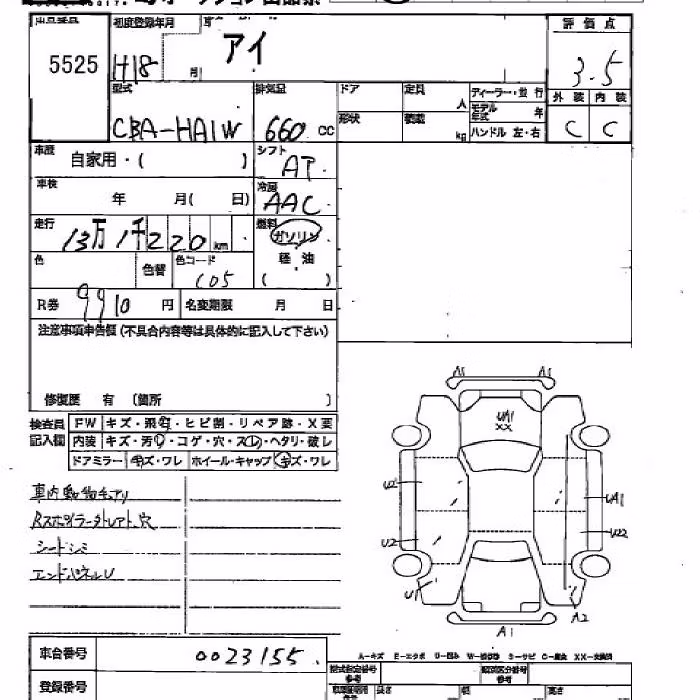 5525
初度登録年月
H18 月
アイ
評価点
3.5
型式
CBA-HA1W
排気量
660 cc
ドア
定員
人
形状
積載
kg
ディーラー・並行
モデル年式 年
ハンドル 左・右
外装 内装
C C
車歴
自家用・( )
シフト
AT
車検
年 月( 日)
冷房
AAC
走行
13万1千220km
燃料
ガソリン
軽油
( )
色
色替
色コード
C05
R券 9910 円
名変期限 月 日
注意事項申告欄(不具合内容等は具体的に記入して下さい)
修復歴 有 〔箇所 〕
検査員記入欄
FW キズ・飛石・ヒビ割・リペア跡・X要
内装 キズ・汚レ・コゲ・穴・スレ・ヘタリ・破レ
ドアミラー キズ・ワレ ホイール・キャップ キズ・ワレ
車内動物毛アリ
Rスポイラー
シートシミ
エンドパネルU
A1 A1
UA1
XX
U2
UA1
U2
U22
U1
A2
A1
A-キズ E-エクボ U-凹み W-補修跡 S-サビ C-腐食 XX-交換済
車台番号 0023155
登録番号
型式指定番号
類別区分番号
長さ
幅
高さ